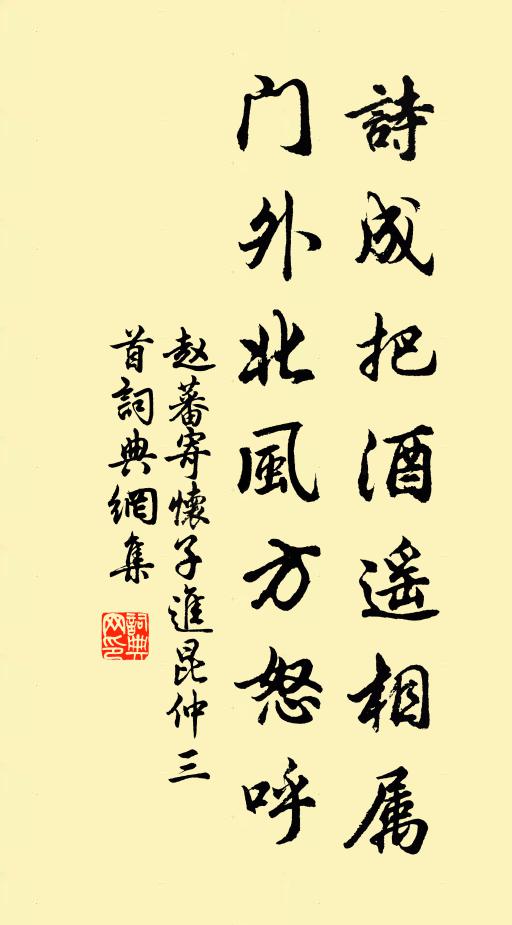 詩成把酒遥相属
门外北風方怒呼
赵蕃寄懷子進昆仲三
首詞典網集
詞典网印